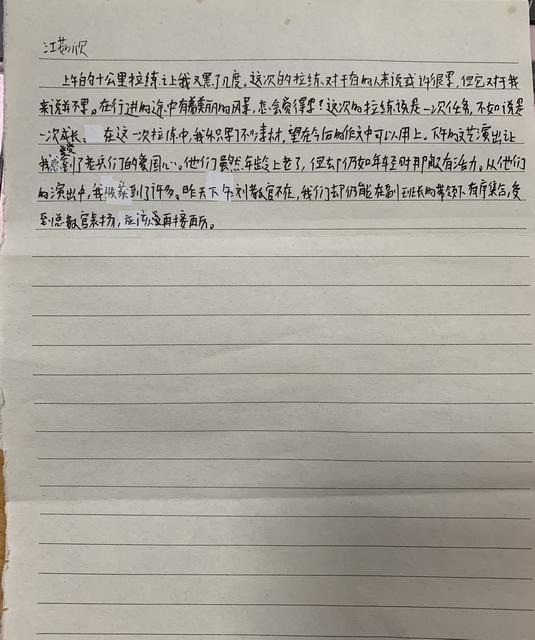 江茹欣
上午的十公里拉练让我又黑了几度。这次的拉练对于有的人来说或许很累,但它对于我
来说并不累。在行进的途中有着美丽的风景,怎会觉得累?这次的拉练说是一次任务,不如说是
一次成长。在这一次拉练中,我积累了不少素材,望在今后的作文中可以用上。下午的文艺演出让
我感受到了老兵们的爱国心。他们虽然年龄上老了,但去仍如年轻时那般有活力。从他们
的演出中,我收获到了许多。昨天下午刘教官不在,我们却仍能在副班长的带领下有序集合,受
到总教官表扬,应该再接再厉。